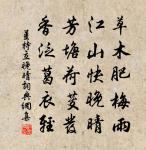 草木肥梅雨
江山快晚晴
芳塘荷芰發
香泛葛衣輕
姜特立晚晴詞典網集